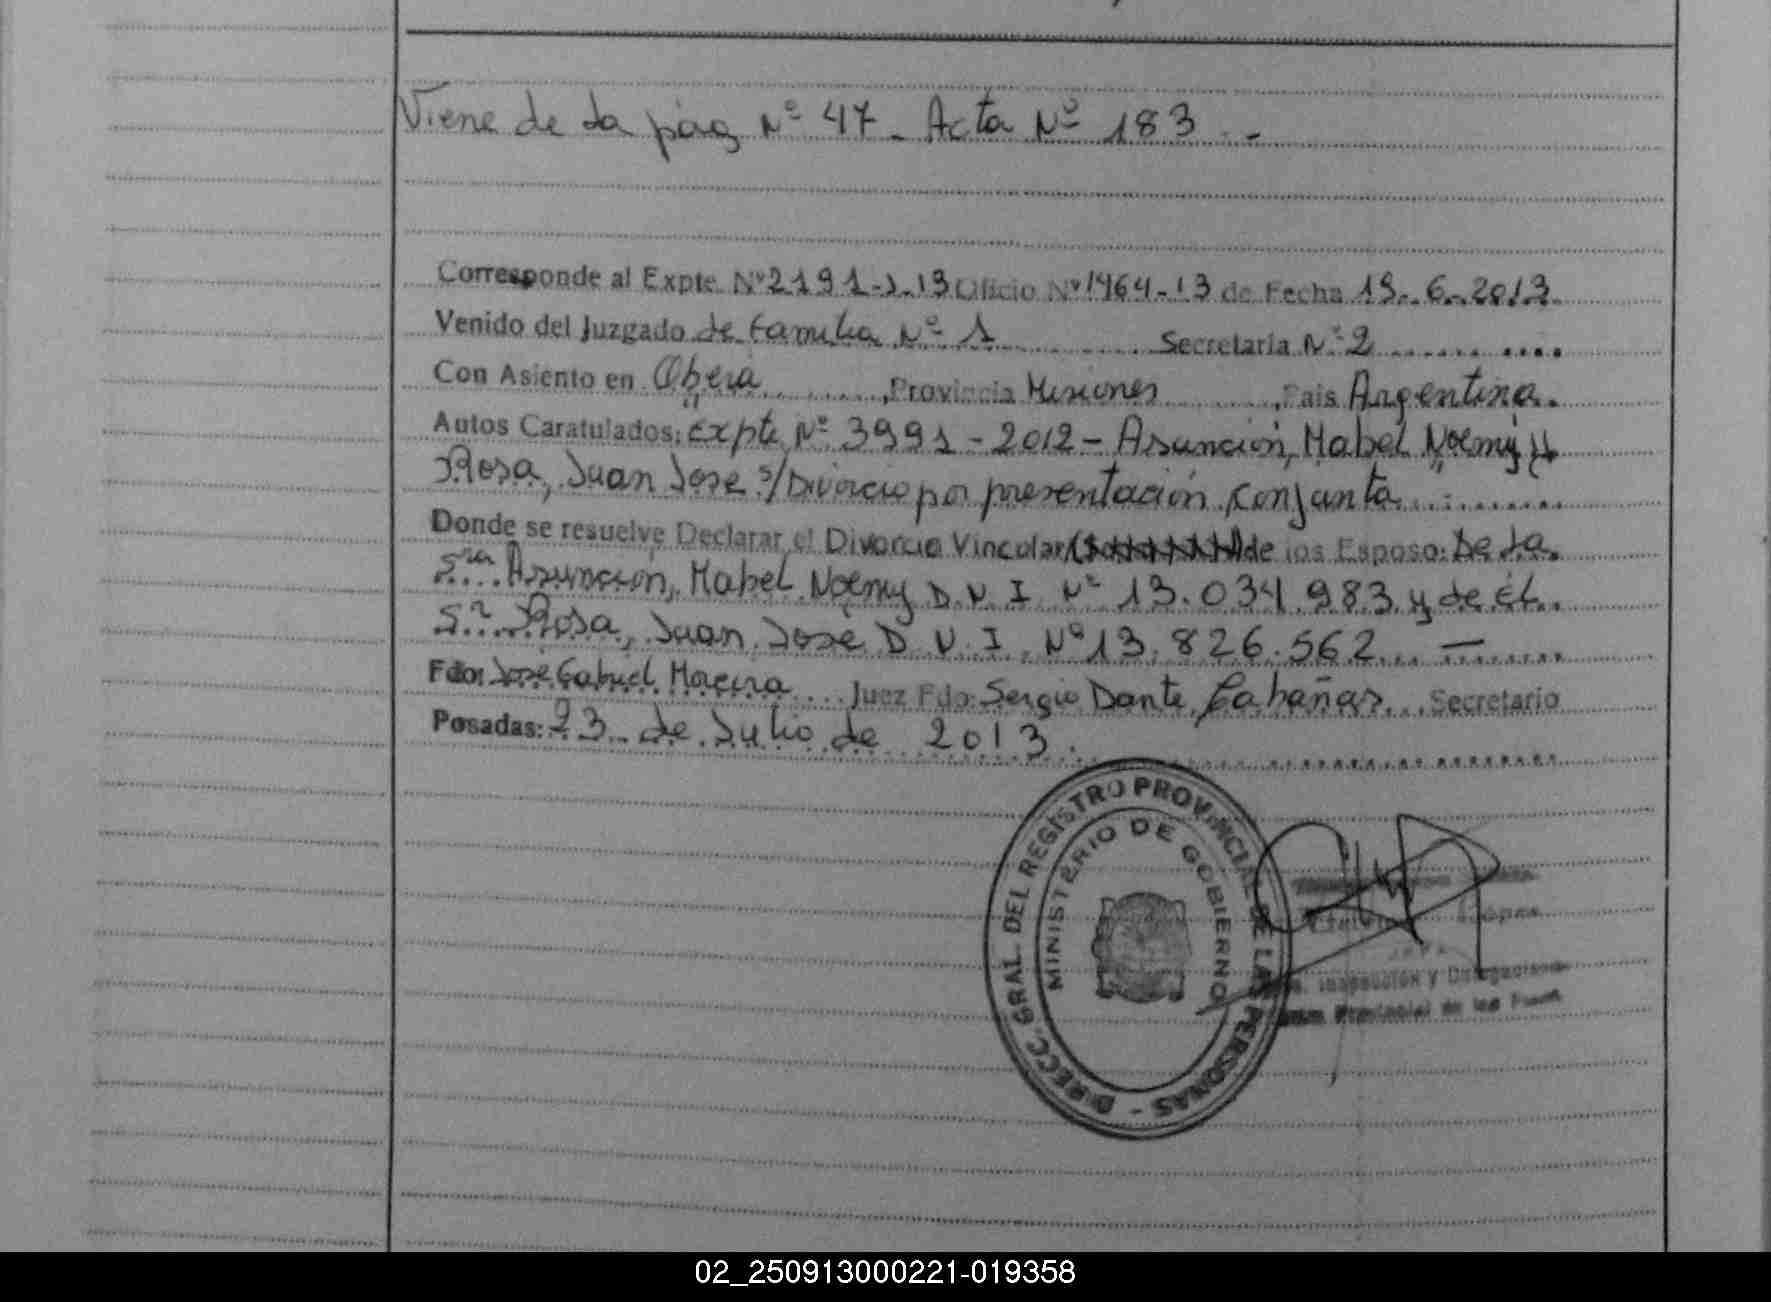 Viene de la pág Nº 47 - Acta Nº 183 . -
Corresponde al Expte Nº 2191-J-13 Oficio Nº 1464-13 de Fecha 19-6-2013.
Venido del Juzgado de Familia Nº 1 Secretaria Nº 2
Con Asiento en Oberá, Provincia Misiones, Pais Argentina.
Autos Caratulados: Expte Nº 3991-2012- Asunción, Mabel Noemy y
Rosa, Juan José s/Divorcio por presentación conjunta
Donde se resuelve Declarar el Divorcio Vincular de los Esposo: De la
Sra Asunción, Mabel Noemy D.N.I Nº 13.034.983 y de él
Sr. Rosa, Juan José D.N.I. Nº 13.826.562 —
Fdo: José Gabriel Moreira Juez Fdo: Sergio Dante Cabañas Secretario
Posadas: 23 de Julio de 2013.
DIRECC. GRAL. DEL REGISTRO PROVINCIAL DE LAS PERSONAS -
MINISTERIO DE GOBIERNO
López
Inspección y Delegaciones
Provincial de las
02_250913000221-019358